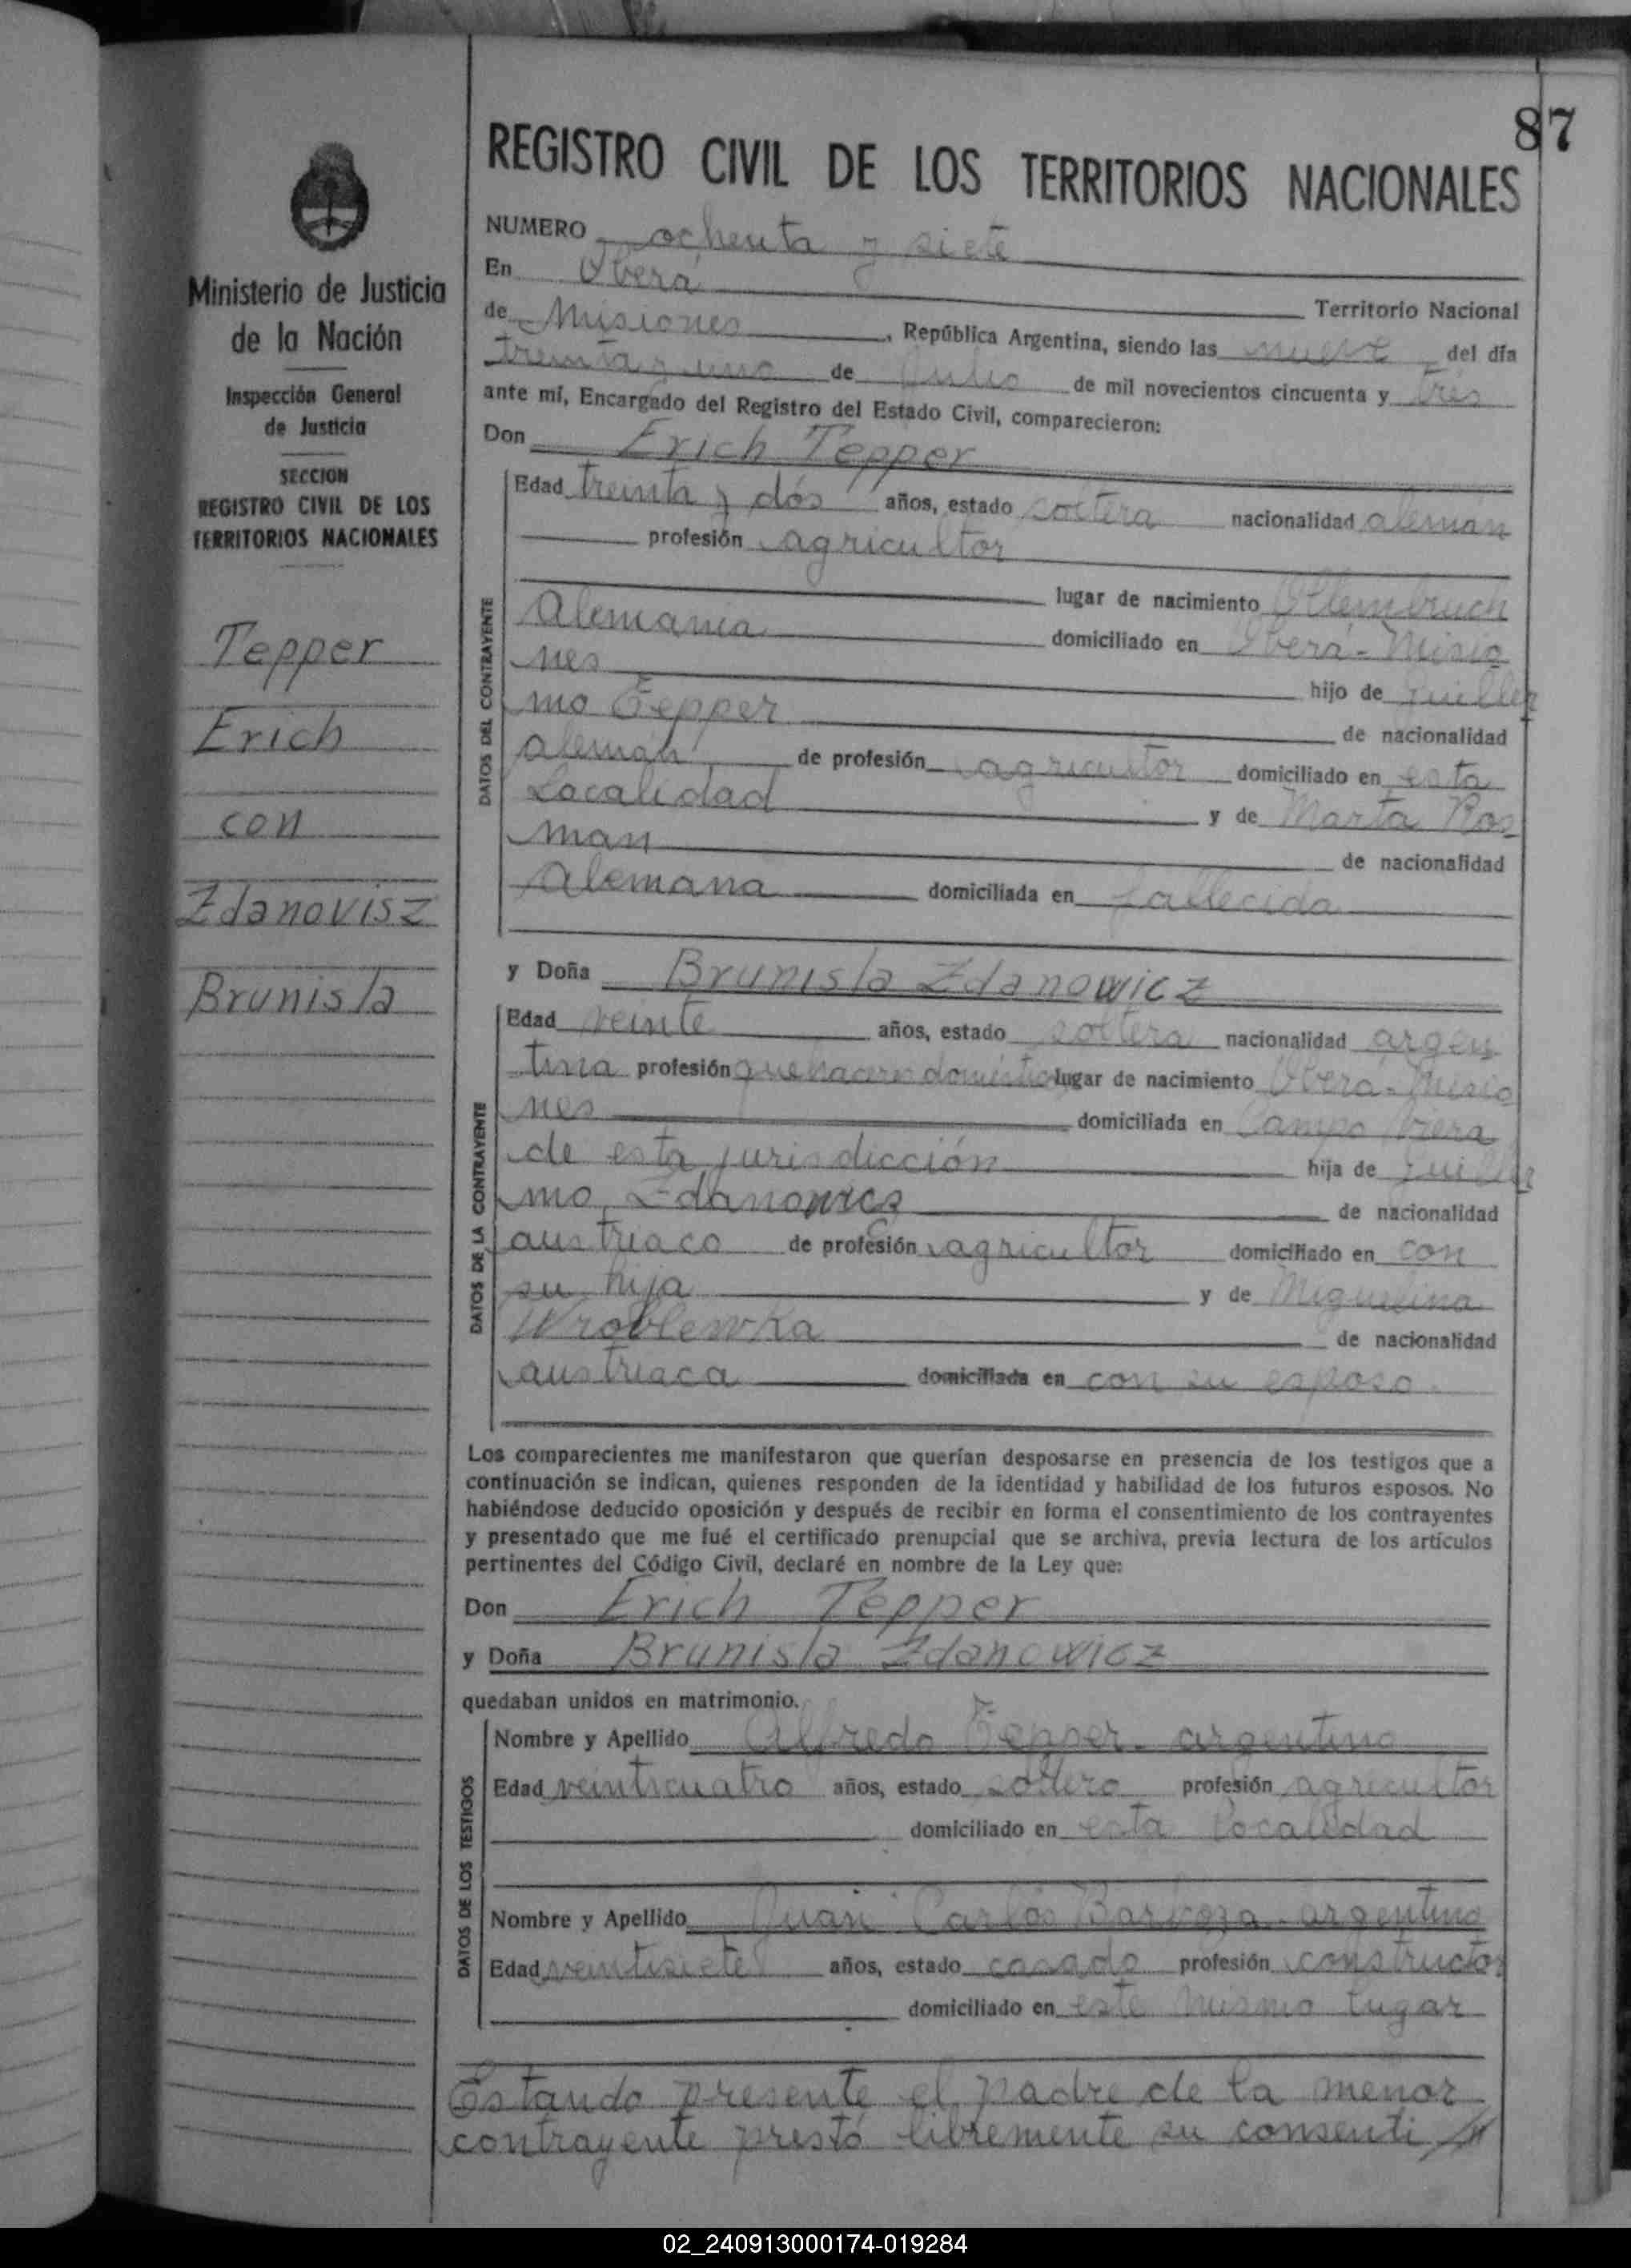 87
REGISTRO CIVIL DE LOS TERRITORIOS NACIONALES
Ministerio de Justicia
de la Nación
Inspección General
de Justicia
SECCION
REGISTRO CIVIL DE LOS
TERRITORIOS NACIONALES
Tepper
Erich
con
Zdanovisz
Brunisla
NUMERO ochenta y siete
En Oberá
Territorio Nacional
de Misiones, República Argentina, siendo las nueve del día
treinta y uno de Julio de mil novecientos cincuenta y tres
ante mí, Encargado del Registro del Estado Civil, comparecieron:
Don Erich Tepper
DATOS DEL CONTRAYENTE
Edad treinta y dós años, estado soltera nacionalidad alemán
profesión agricultor
lugar de nacimiento
Alemania domiciliado en Oberá - Misio
nes hijo de Guiller
mo Tepper de nacionalidad
alemán de profesión agricultor domiciliado en esta
Localidad y de Marta Ros
man de nacionalidad
Alemana domiciliada en fallecida
y Doña Brunisla Zdanowicz
DATOS DE LA CONTRAYENTE
Edad veinte años, estado soltera nacionalidad argen
tina profesión quehaceres domésticos lugar de nacimiento Oberá - Misio
nes domiciliada en Campo Viera
de esta jurisdicción hija de Guiller
mo Zdanowicz de nacionalidad
austriaco de profesión agricultor domiciliado en con
su hija y de Miguelina
Wroblewka de nacionalidad
austriaca domiciliada en con su esposo.
Los comparecientes me manifestaron que querían desposarse en presencia de los testigos que a
continuación se indican, quienes responden de la identidad y habilidad de los futuros esposos. No
habiéndose deducido oposición y después de recibir en forma el consentimiento de los contrayentes
y presentado que me fué el certificado prenupcial que se archiva, previa lectura de los artículos
pertinentes del Código Civil, declaré en nombre de la Ley que:
Don Erich Tepper
y Doña Brunisla Zdanowicz
quedaban unidos en matrimonio.
DATOS DE LOS TESTIGOS
Nombre y Apellido Alfredo Tepper - argentino
Edad veinticuatro años, estado soltero profesión agricultor
domiciliado en esta Localidad
Nombre y Apellido Juan Carlos Barboza - argentino
Edad veintisiete años, estado casado profesión constructor
domiciliado en este mismo lugar
Estando presente el padre de la menor
contrayente prestó libremente su consenti
02_240913000174-019284